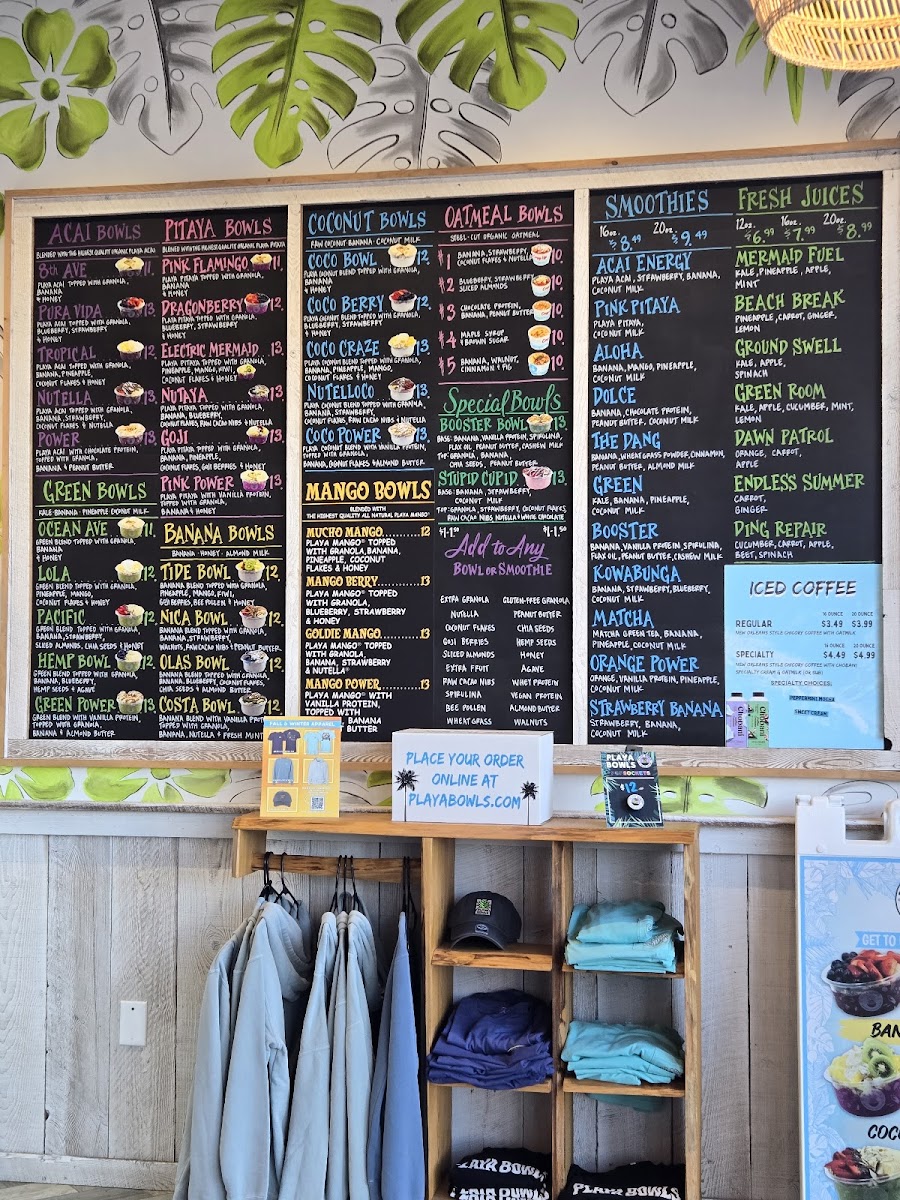 ACAI BOWLS
BLENDED WITH THE HIGHEST QUALITY ORGANIC PLAYA ACAI
8th AVE 11.
PLAYA ACAI TOPPED WITH GRANOLA,
BANANA
& HONEY
PURA VIDA 13.
PLAYA ACAI TOPPED WITH GRANOLA,
BLUEBERRY, STRAWBERRY
& HONEY
TROPICAL 12.
PLAYA ACAI TOPPED WITH GRANOLA,
BANANA, PINEAPPLE,
COCONUT FLAKES & HONEY
NUTELLA 13.
PLAYA ACAI TOPPED WITH GRANOLA,
BANANA, STRAWBERRY,
COCONUT FLAKES & NUTELLA
POWER 13.
PLAYA ACAI WITH CHOCOLATE PROTEIN,
TOPPED WITH GRANOLA,
BANANA & PEANUT BUTTER
GREEN BOWLS
KALE BANANA PINEAPPLE COCONUT MILK
OCEAN AVE 11.
GREEN BLEND TOPPED WITH GRANOLA,
BANANA
& HONEY
LOLA 12.
GREEN BLEND TOPPED WITH GRANOLA,
PINEAPPLE, MANGO,
COCONUT FLAKES & HONEY
PACIFIC 12.
GREEN BLEND TOPPED WITH GRANOLA,
BANANA, STRAWBERRY,
SLICED ALMONDS, CHIA SEEDS & HONEY
HEMP BOWL 12.
GREEN BLEND TOPPED WITH GRANOLA,
BANANA, BLUEBERRY,
HEMP SEEDS & AGAVE
GREEN POWER 13.
GREEN BLEND WITH VANILLA PROTEIN,
TOPPED WITH GRANOLA,
BANANA & ALMOND BUTTER
PITAYA BOWLS
BLENDED WITH THE HIGHEST QUALITY ORGANIC PLAYA PITAYA
PINK FLAMINGO 11.
PLAYA PITAYA TOPPED WITH GRANOLA,
BANANA
& HONEY
DRAGONBERRY 12.
PLAYA PITAYA TOPPED WITH GRANOLA,
BLUEBERRY, STRAWBERRY
& HONEY
ELECTRIC MERMAID 13.
PLAYA PITAYA TOPPED WITH GRANOLA,
PINEAPPLE, MANGO, KIWI,
COCONUT FLAKES & HONEY
NUTAYA 13.
PLAYA PITAYA TOPPED WITH GRANOLA,
BANANA, BLUEBERRY,
COCONUT FLAKES, RAW CACAO NIBS & NUTELLA
GOJI 13.
PLAYA PITAYA TOPPED WITH GRANOLA,
BANANA, PINEAPPLE,
COCONUT FLAKES, GOJI BERRIES & HONEY
PINK POWER 13.
PLAYA PITAYA WITH VANILLA PROTEIN,
TOPPED WITH GRANOLA,
BANANA & HONEY
BANANA BOWLS
BANANA · HONEY · ALMOND MILK
TIDE BOWL 12.
BANANA BLEND TOPPED WITH GRANOLA,
PINEAPPLE, MANGO, KIWI,
GOJI BERRIES, BEE POLLEN & HONEY
NICA BOWL 12.
BANANA BLEND TOPPED WITH GRANOLA,
BANANA, STRAWBERRY,
WALNUTS, RAW CACAO NIBS & PEANUT BUTTER
OLAS BOWL 12.
BANANA BLEND TOPPED WITH GRANOLA,
BANANA, BLUEBERRY, COCONUT FLAKES,
CHIA SEEDS & ALMOND BUTTER
COSTA BOWL 12.
BANANA BLEND WITH VANILLA PROTEIN
TOPPED WITH GRANOLA,
BANANA, NUTELLA & FRESH MINT
COCONUT BOWLS
RAW COCONUT · BANANA · COCONUT MILK
COCO BOWL 12.
PLAYA COCONUT BLEND TOPPED WITH GRANOLA,
BANANA
& HONEY
COCO BERRY 12.
PLAYA COCONUT BLEND TOPPED WITH GRANOLA,
BLUEBERRY, STRAWBERRY
& HONEY
COCO CRAZE 13.
PLAYA COCONUT BLEND TOPPED WITH GRANOLA,
BANANA, PINEAPPLE, MANGO,
COCONUT FLAKES & HONEY
NUTELLOCO 13.
PLAYA COCONUT BLEND TOPPED WITH GRANOLA,
BANANA, STRAWBERRY,
COCONUT FLAKES, RAW CACAO NIBS & NUTELLA
COCO POWER 13.
PLAYA COCONUT BLEND WITH VANILLA PROTEIN,
TOPPED WITH GRANOLA,
BANANA, COCONUT FLAKES & ALMOND BUTTER
MANGO BOWLS
BLENDED WITH
THE HIGHEST QUALITY ALL NATURAL PLAYA MANGO®
MUCHO MANGO..........12
PLAYA MANGO® TOPPED
WITH GRANOLA, BANANA,
PINEAPPLE, COCONUT
FLAKES & HONEY
MANGO BERRY...........13
PLAYA MANGO® TOPPED
WITH GRANOLA,
BLUEBERRY, STRAWBERRY
& HONEY
GOLDIE MANGO..........13
PLAYA MANGO® TOPPED
WITH GRANOLA,
BANANA, STRAWBERRY
& NUTELLA®
MANGO POWER...........13
PLAYA MANGO® WITH
VANILLA PROTEIN,
TOPPED WITH
BANANA
BUTTER
OATMEAL BOWLS
STEEL-CUT ORGANIC OATMEAL
#1 BANANA, STRAWBERRY,
COCONUT FLAKES & NUTELLA 10.
#2 BLUEBERRY, STRAWBERRY
SLICED ALMONDS 10.
#3 CHOCOLATE PROTEIN,
BANANA, PEANUT BUTTER 10.
#4 MAPLE SYRUP
& BROWN SUGAR 10.
#5 BANANA, WALNUT,
CINNAMON & PB 10.
Special Bowls
BOOSTER BOWL 13.
BASE: BANANA, VANILLA PROTEIN, SPIRULINA,
FLAX OIL, PEANUT BUTTER, CASHEW MILK
TOP: GRANOLA, BANANA,
CHIA SEEDS, PEANUT BUTTER
STUPID CUPID 13.
BASE: BANANA, STRAWBERRY,
COCONUT MILK
TOP: GRANOLA, STRAWBERRY, COCONUT FLAKES,
RAW CACAO NIBS, NUTELLA & WHITE CHOCOLATE
$1-1.50 $1-1.50
Add to Any
BOWL OR SMOOTHIE
EXTRA GRANOLA
NUTELLA
COCONUT FLAKES
GOJI BERRIES
SLICED ALMONDS
EXTRA FRUIT
RAW CACAO NIBS
SPIRULINA
BEE POLLEN
WHEATGRASS
GLUTEN-FREE GRANOLA
PEANUT BUTTER
CHIA SEEDS
HEMP SEEDS
HONEY
AGAVE
WHEY PROTEIN
VEGAN PROTEIN
ALMOND BUTTER
WALNUTS
SMOOTHIES
16oz. 20oz.
$8.49 $9.49
ACAI ENERGY
PLAYA ACAI, STRAWBERRY, BANANA,
COCONUT MILK
PINK PITAYA
PLAYA PITAYA,
COCONUT MILK
ALOHA
BANANA, MANGO, PINEAPPLE,
COCONUT MILK
DOLCE
BANANA, CHOCOLATE PROTEIN,
PEANUT BUTTER, COCONUT MILK
THE DANG
BANANA, WHEATGRASS POWDER, CINNAMON,
PEANUT BUTTER, ALMOND MILK
GREEN
KALE, BANANA, PINEAPPLE,
COCONUT MILK
BOOSTER
BANANA, VANILLA PROTEIN, SPIRULINA,
FLAX OIL, PEANUT BUTTER, CASHEW MILK
KOWABUNGA
BANANA, STRAWBERRY, BLUEBERRY,
COCONUT MILK
MATCHA
MATCHA GREEN TEA, BANANA,
PINEAPPLE, COCONUT MILK
ORANGE POWER
ORANGE, VANILLA PROTEIN, PINEAPPLE,
COCONUT MILK
STRAWBERRY BANANA
STRAWBERRY, BANANA,
COCONUT MILK
FRESH JUICES
12oz. 16oz. 20oz.
$6.99 $7.99 $8.99
MERMAID FUEL
KALE, PINEAPPLE, APPLE,
MINT
BEACH BREAK
PINEAPPLE, CARROT, GINGER,
LEMON
GROUND SWELL
KALE, APPLE,
SPINACH
GREEN ROOM
KALE, APPLE, CUCUMBER, MINT,
LEMON
DAWN PATROL
ORANGE, CARROT,
APPLE
ENDLESS SUMMER
CARROT,
GINGER
DING REPAIR
CUCUMBER, CARROT, APPLE,
BEET, SPINACH
ICED COFFEE
16 OUNCE 20 OUNCE
REGULAR $3.49 $3.99
NEW ORLEANS STYLE CHICORY COFFEE WITH OATMILK
16 OUNCE 20 OUNCE
SPECIALTY $4.49 $4.99
NEW ORLEANS STYLE CHICORY COFFEE WITH CHOBANI
SPECIALTY CREAM & OATMILK (OR SUB)
SPECIALTY CHOICES:
PEPPERMINT MOCHA
SWEET CREAM
Chobani
FALL & WINTER APPAREL
PLACE YOUR ORDER
ONLINE AT
PLAYABOWLS.COM
PLAYA
BOWLS
POP SOCKETS
$12
PLAYA BOWLS
PLAYA BOWLS
PLAYA BOWLS
GET TO
BAN
COCO